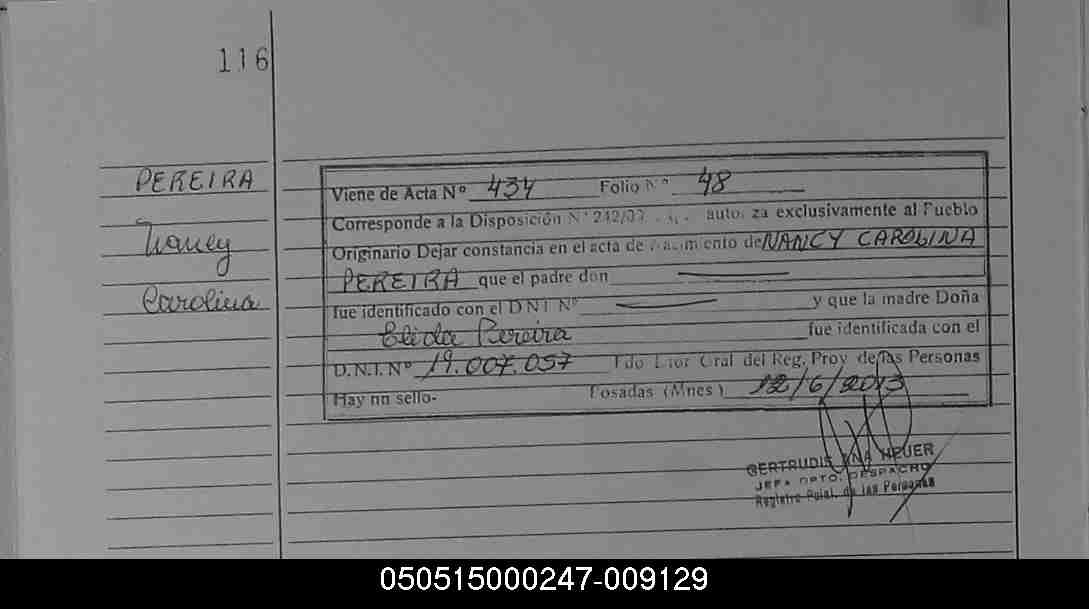 116
PEREIRA
Nancy
Carolina
Viene de Acta Nº 434 Folio Nº 48
Corresponde a la Disposición Nº 242/07 autoriza exclusivamente al Pueblo
Originario Dejar constancia en el acta de Nacimiento de NANCY CAROLINA
PEREIRA que el padre don
fue identificado con el DNI Nº y que la madre Doña
Elida Pereira fue identificada con el
D.N.I. Nº 19.007.057 Fdo Dtor Gral del Reg. Prov de las Personas
Hay un sello- Posadas (Mnes) 12/6/2013
GERTRUDIS ANA HEUER
JEFA DPTO. DESPACHO
Registro Pcial. de las Personas
050515000247-009129